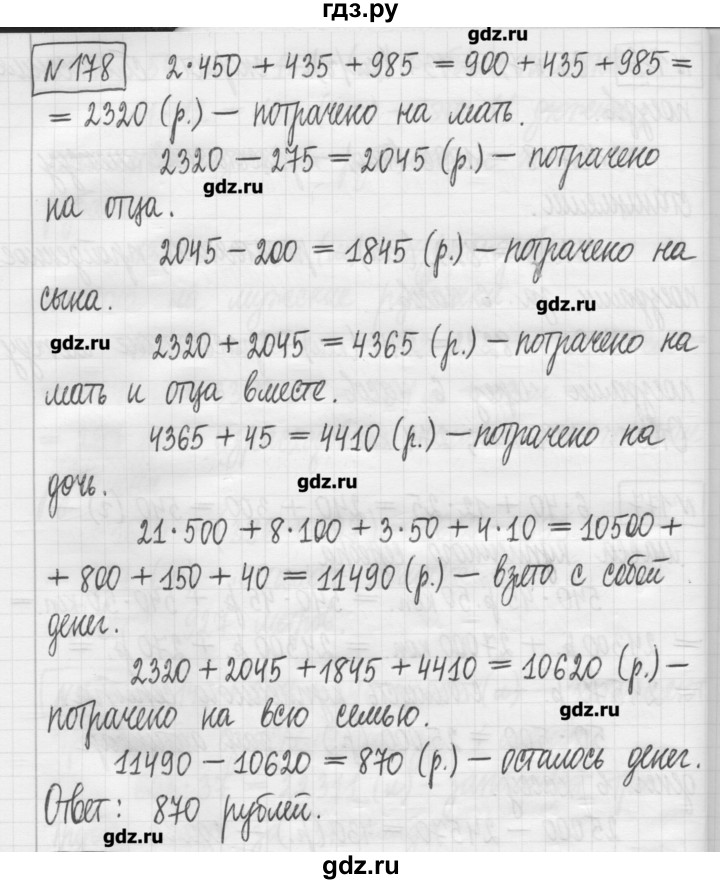 гдз.ру
gdz.ru
№178 2·450 + 435 + 985 = 900 + 435 + 985 =
= 2320 (р.) — потрачено на мать.
2320 − 275 = 2045 (р.) — потрачено
gdz.ru
на отца.
2045 − 200 = 1845 (р.) — потрачено на
сына.
gdz.ru
gdz.ru
2320 + 2045 = 4365 (р.) — потрачено на
мать и отца вместе.
4365 + 45 = 4410 (р.) — потрачено на
дочь.
gdz.ru
21·500 + 8·100 + 3·50 + 4·10 = 10500 +
+ 800 + 150 + 40 = 11490 (р.) — взято с собой
денег.
2320 + 2045 + 1845 + 4410 = 10620 (р.) —
потрачено на всю семью.
gdz.ru
11490 − 10620 = 870 (р.) — осталось денег.
Ответ: 870 рублей.
gdz.ru
gdz.ru